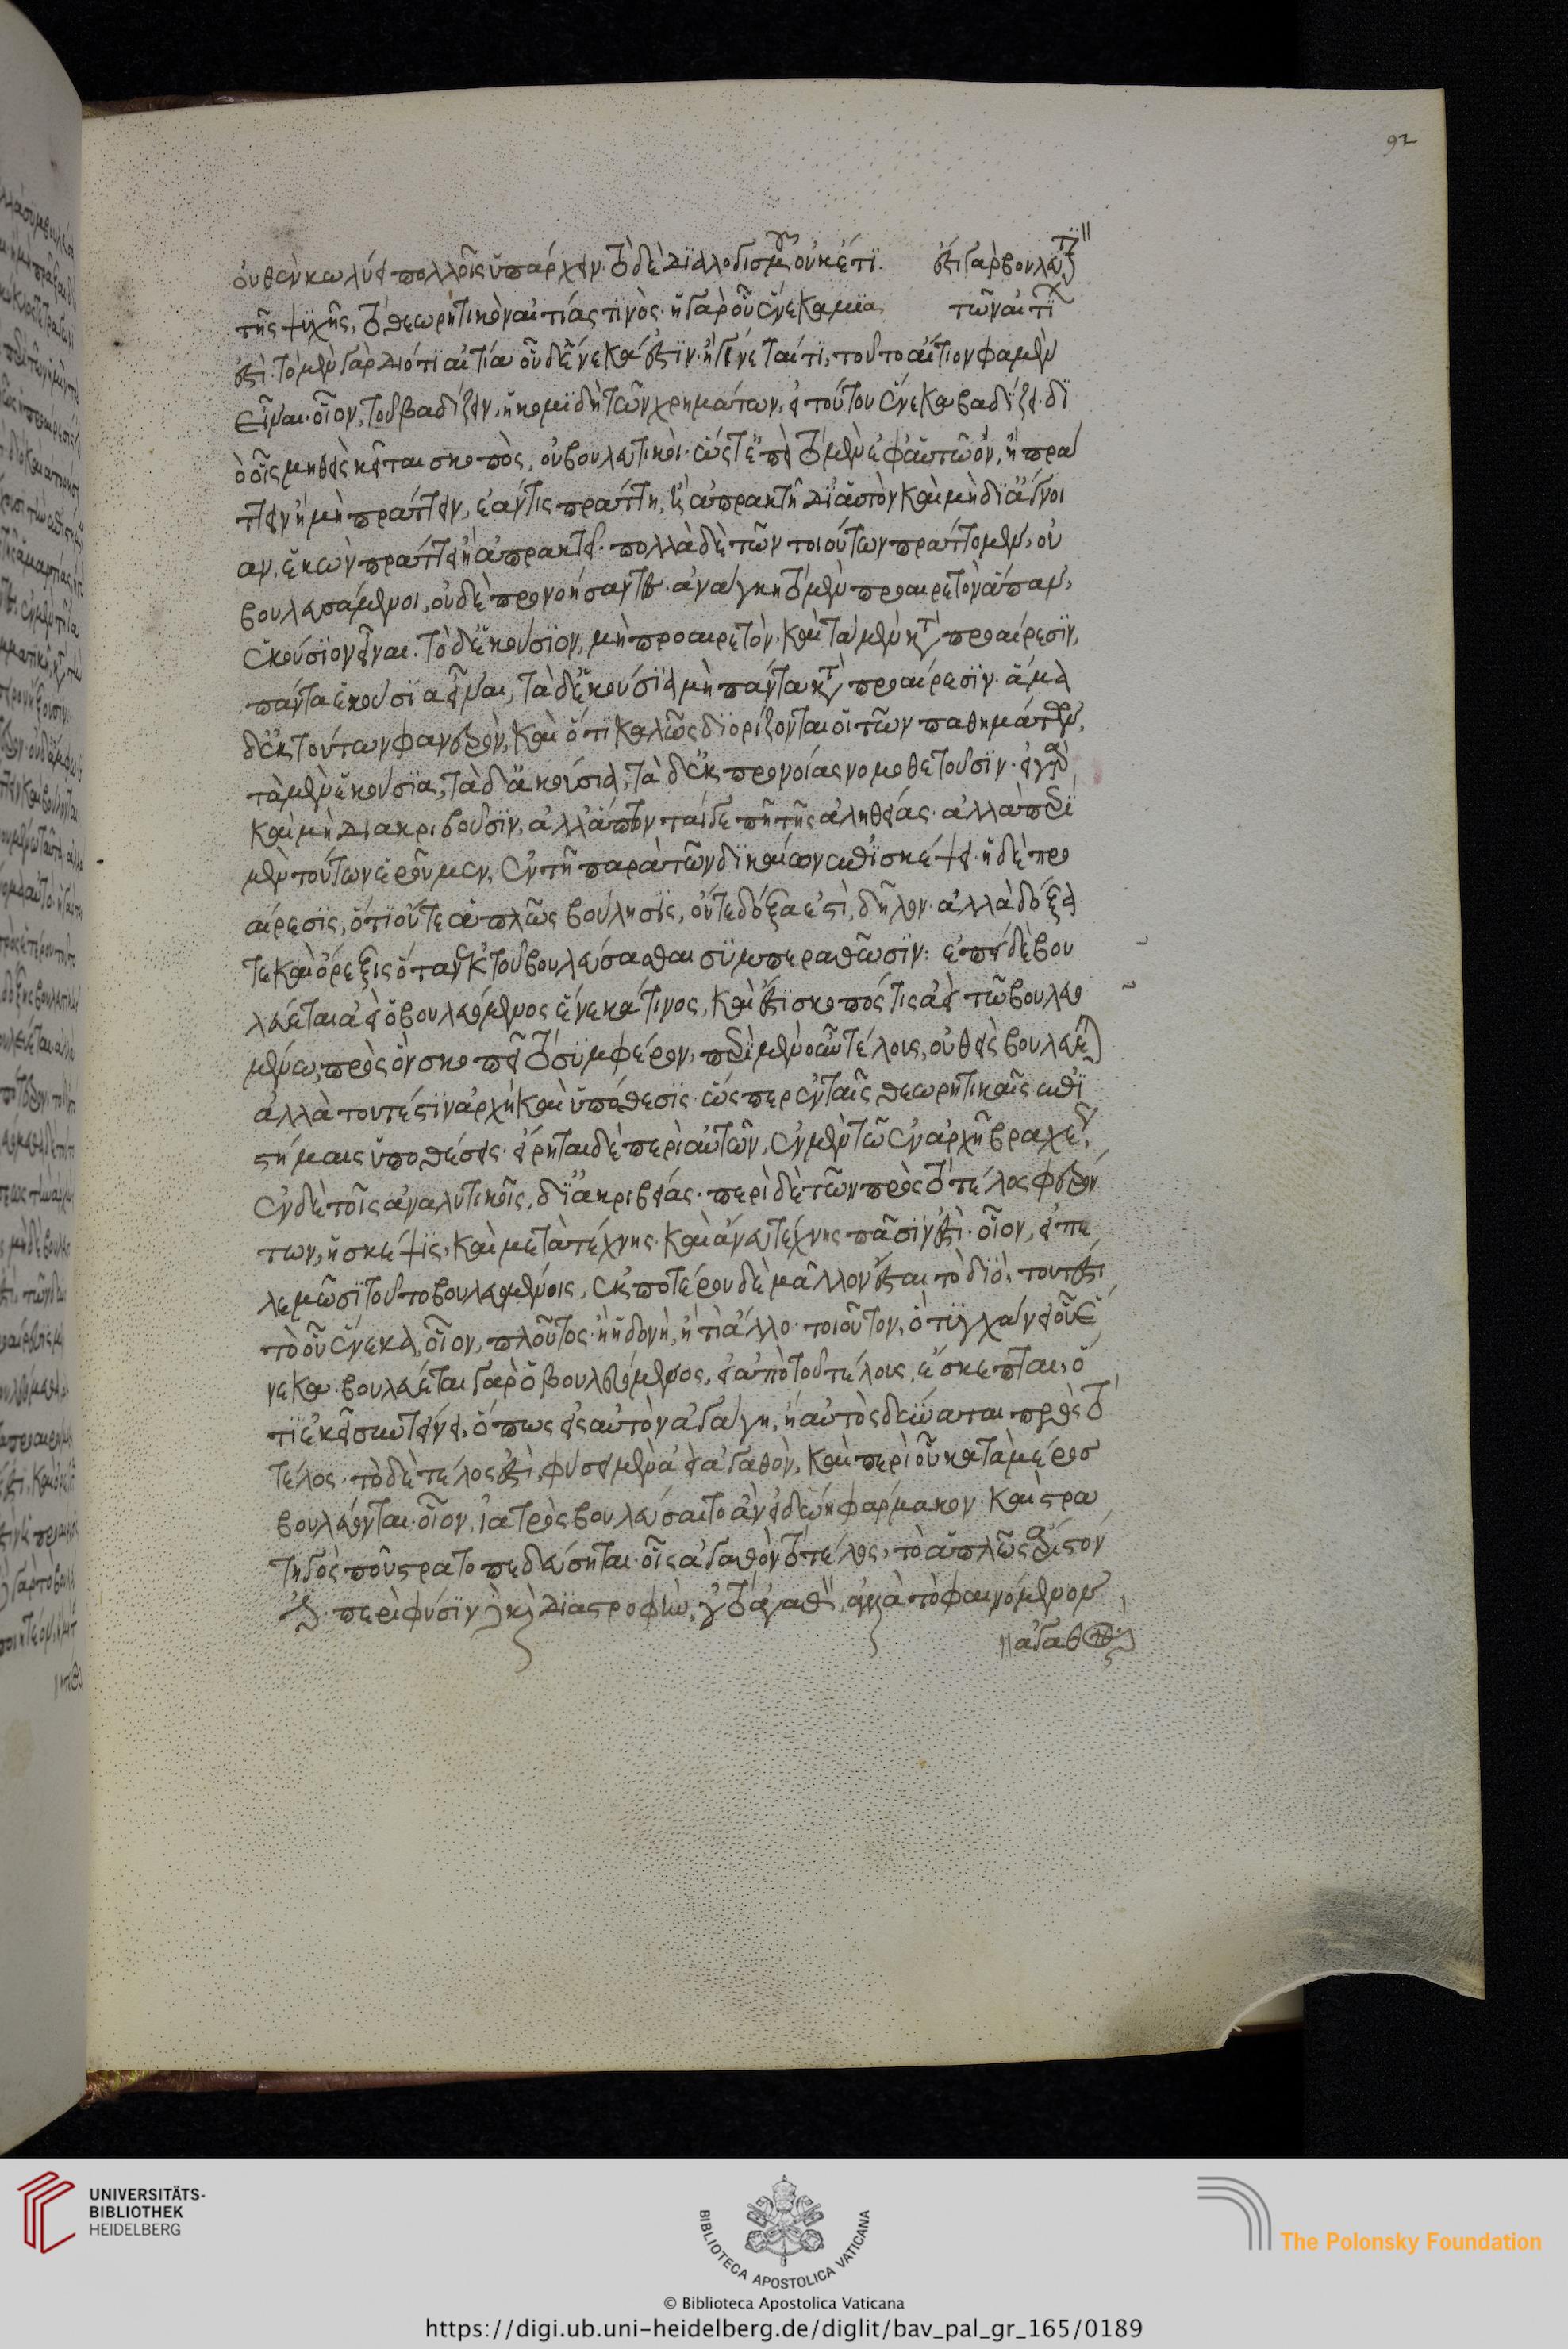 οὐθὲν κωλύει πολλοῖς ὑπάρχειν. τὸ δὲ διαλογισμοῦ οὐκέτι. ἔστι γὰρ βουλευτι
τῆς ψυχῆς, τὸ θεωρητικὸν αἰτίας τινός. ἡ γὰρ οὗ ἕνεκα μία τῶν αἰτι
ἐστὶ. τὸ μὲν γὰρ διότι αἰτία οὗ δ' ἕνεκά ἐστιν. ἢ γίνεταί τι, τοῦτο αἴτιον φαμὲν
εἶναι. οἷον, τοῦ βαδίζειν, ἡ κομιδὴ τῶν χρημάτων, εἰ τούτου ἕνεκα βαδίζει. δι
ὸ οἷς μηθεὶς κεῖται σκοπὸς, οὐ βουλευτικοί. ὥστε ἐπεὶ τὸ μὲν ἐφ' αὑτῶ ὂν, ἢ πρα
ττειν ἢ μὴ πράττειν, ἐάν τις πράττη, ἢ ἀπρακτῆ δι' αὑτὸν καὶ μὴ δι' ἄγνοι
αν, ἑκὼν πράττει ἢ ἀπρακτεῖ. πολλὰ δὲ τῶν τοιούτων πράττομεν, οὐ
βουλευσάμενοι, οὐδὲ προνοήσαντες. ἀνάγκη τὸ μὲν προαιρετὸν ἅπαν,
ἑκούσιον εἶναι. τὸ δ' ἑκούσιον, μὴ προαιρετόν. καὶ τὰ μὲν κατὰ προαίρεσιν,
πάντα ἑκούσια εἶναι, τὰ δ' ἑκούσια μὴ πάντα κατὰ προαίρεσιν. ἅμα
δ' ἐκ τούτων φανερὸν, καὶ ὅτι καλῶς διορίζονται οἳ τῶν παθημάτων,
τὰ μὲν ἑκούσια, τὰ δ' ἀκούσια, τὰ δ' ἐκ προνοίας νομοθετοῦσιν. εἰ γὰρ
καὶ μὴ διακριβοῦσιν, ἀλλ' ἅπτονταί γε πῆ τῆς ἀληθείας. ἀλλὰ περὶ
μὲν τούτων ἐροῦμεν, ἐν τῆ παρὰ τῶν δικαίων ἐπισκέψει. ἡ δὲ προ
αίρεσις, ὅτι οὔτε ἁπλῶς βούλησις, οὔτε δόξα ἐστὶ, δῆλον. ἀλλὰ δόξα
τε καὶ ὄρεξις ὅταν ἐκ τοῦ βουλεύσασθαι συμπερανθῶσιν: ἐπεὶ δὲ βου
λεύεται ἀεὶ ὁ βουλευόμενος ἕνεκά τινος, καὶ ἔστι σκοπός τις ἀεὶ τῶ βουλευο
μένω, πρὸς ὃν σκοπεῖ τὸ συμφέρον, περὶ μὲν τοῦ τέλους, οὐθεὶς βουλεύε
ἀλλὰ τοῦτ' ἐστιν ἀρχὴ καὶ ὑπόθεσις. ὥσπερ ἐν ταῖς θεωρητικαῖς ἐπι
στήμαις ὑποθέσεις. εἴρηται δὲ περὶ αὐτῶν, ἐν μὲν τῶ ἐν ἀρχῆ βραχέως,
ἐν δὲ τοῖς ἀναλυτικοῖς, δι' ἀκριβείας. περὶ δὲ τῶν πρὸς τὸ τέλος φερόν
των, ἡ σκέψις, καὶ μετὰ τέχνης. καὶ ἄνευ τέχνης πᾶσίν ἐστι. οἷον, εἰ πο
λεμῶσι τοῦτο βουλευομένοις, ἐκ ποτέρου δὲ μᾶλλον ἔσται τὸ διὸ, τοῦτ' ἔστι
τὸ οὗ ἕνεκα, οἷον, πλοῦτος. ἢ ἡδονὴ, ἤ τι ἄλλο. τοιοῦτον, ὃ τυγχάνει οὗ ἕ
νεκα. βουλεύεται γὰρ ὁ βουλευόμενος, εἰ ἀπὸ τοῦ τέλους, ἔσκεπται, ὅ
τι ἐκεῖ συντείνει, ὅπως εἰς αὑτὸν ἀγάγη, ἢ αὐτὸς δύναται πρὸς τὸ
τέλος. τὸ δὲ τέλος ἐστὶ, φύσει μὲν ἀεὶ ἀγαθὸν, καὶ περὶ οὗ κατὰ μέρος
βουλεύονται. οἷον, ἰατρὸς βουλεύσαιτο ἂν εἰ δώη φάρμακον. καὶ στρα
τηγὸς ποῦ στρατοπεδεύσηται. οἷς ἀγαθὸν τὸ τέλος, τὸ ἁπλῶς ἄριστόν
ἐστι. περὶ φύσιν καὶ διαστροφὴν, οὐ τὸ ἀγαθ, ἀλλὰ τὸ φαινόμενον
ἀγαθόν
92
UNIVERSITÄTS-
BIBLIOTHEK
HEIDELBERG
BIBLIOTECA APOSTOLICA VATICANA
The Polonsky Foundation
© Biblioteca Apostolica Vaticana
https://digi.ub.uni-heidelberg.de/diglit/bav_pal_gr_165/0189